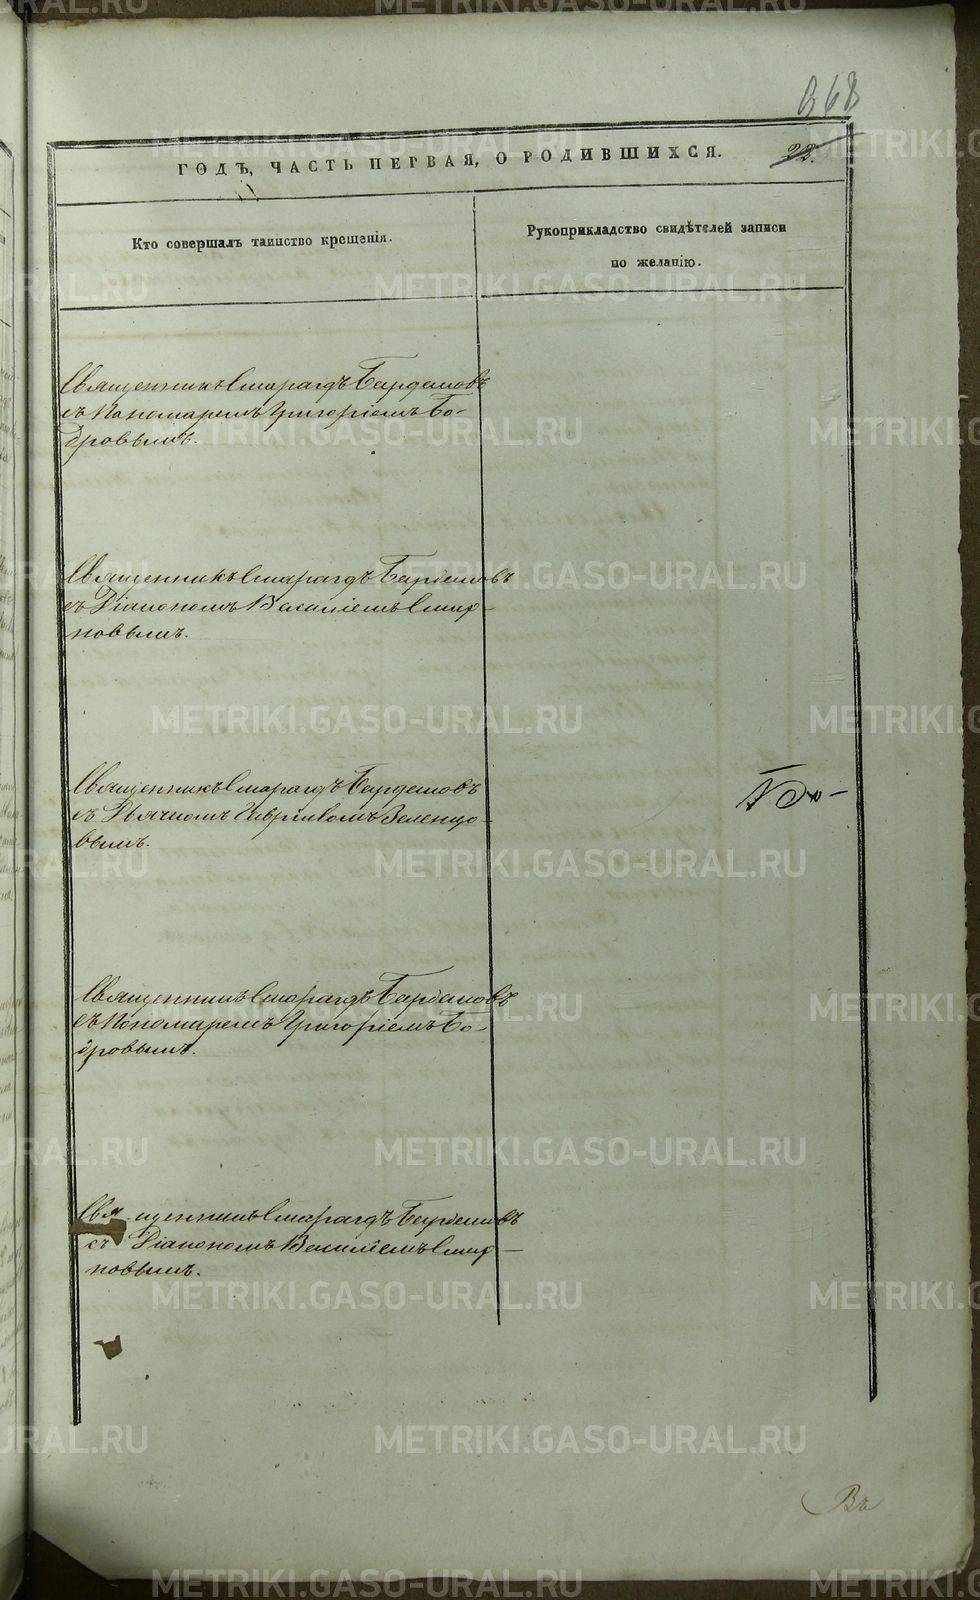 368
ГОДЪ, ЧАСТЬ ПЕРВАЯ, О РОДИВШИХСЯ. 22.
Кто совершалъ таинство крещенія.
Рукоприкладство свидѣтелей записи
по желанію.
Священникъ Смарагдъ Бардамовъ
съ Пономаремъ Григоріемъ Бо-
бровымъ.
Священникъ Смарагдъ Бардамовъ
съ Діакономъ Василіемъ Смир-
новымъ.
Священникъ Смарагдъ Бардамовъ
съ Дьячкомъ Гавріиломъ Зеленцо-
вымъ.
Священникъ Смарагдъ Бардамовъ
съ Пономаремъ Григоріемъ Бо-
бровымъ.
Священникъ Смарагдъ Бардамовъ
съ Діакономъ Василіемъ Смир-
новымъ.
Въ
METRIKI.GASO-URAL.RU